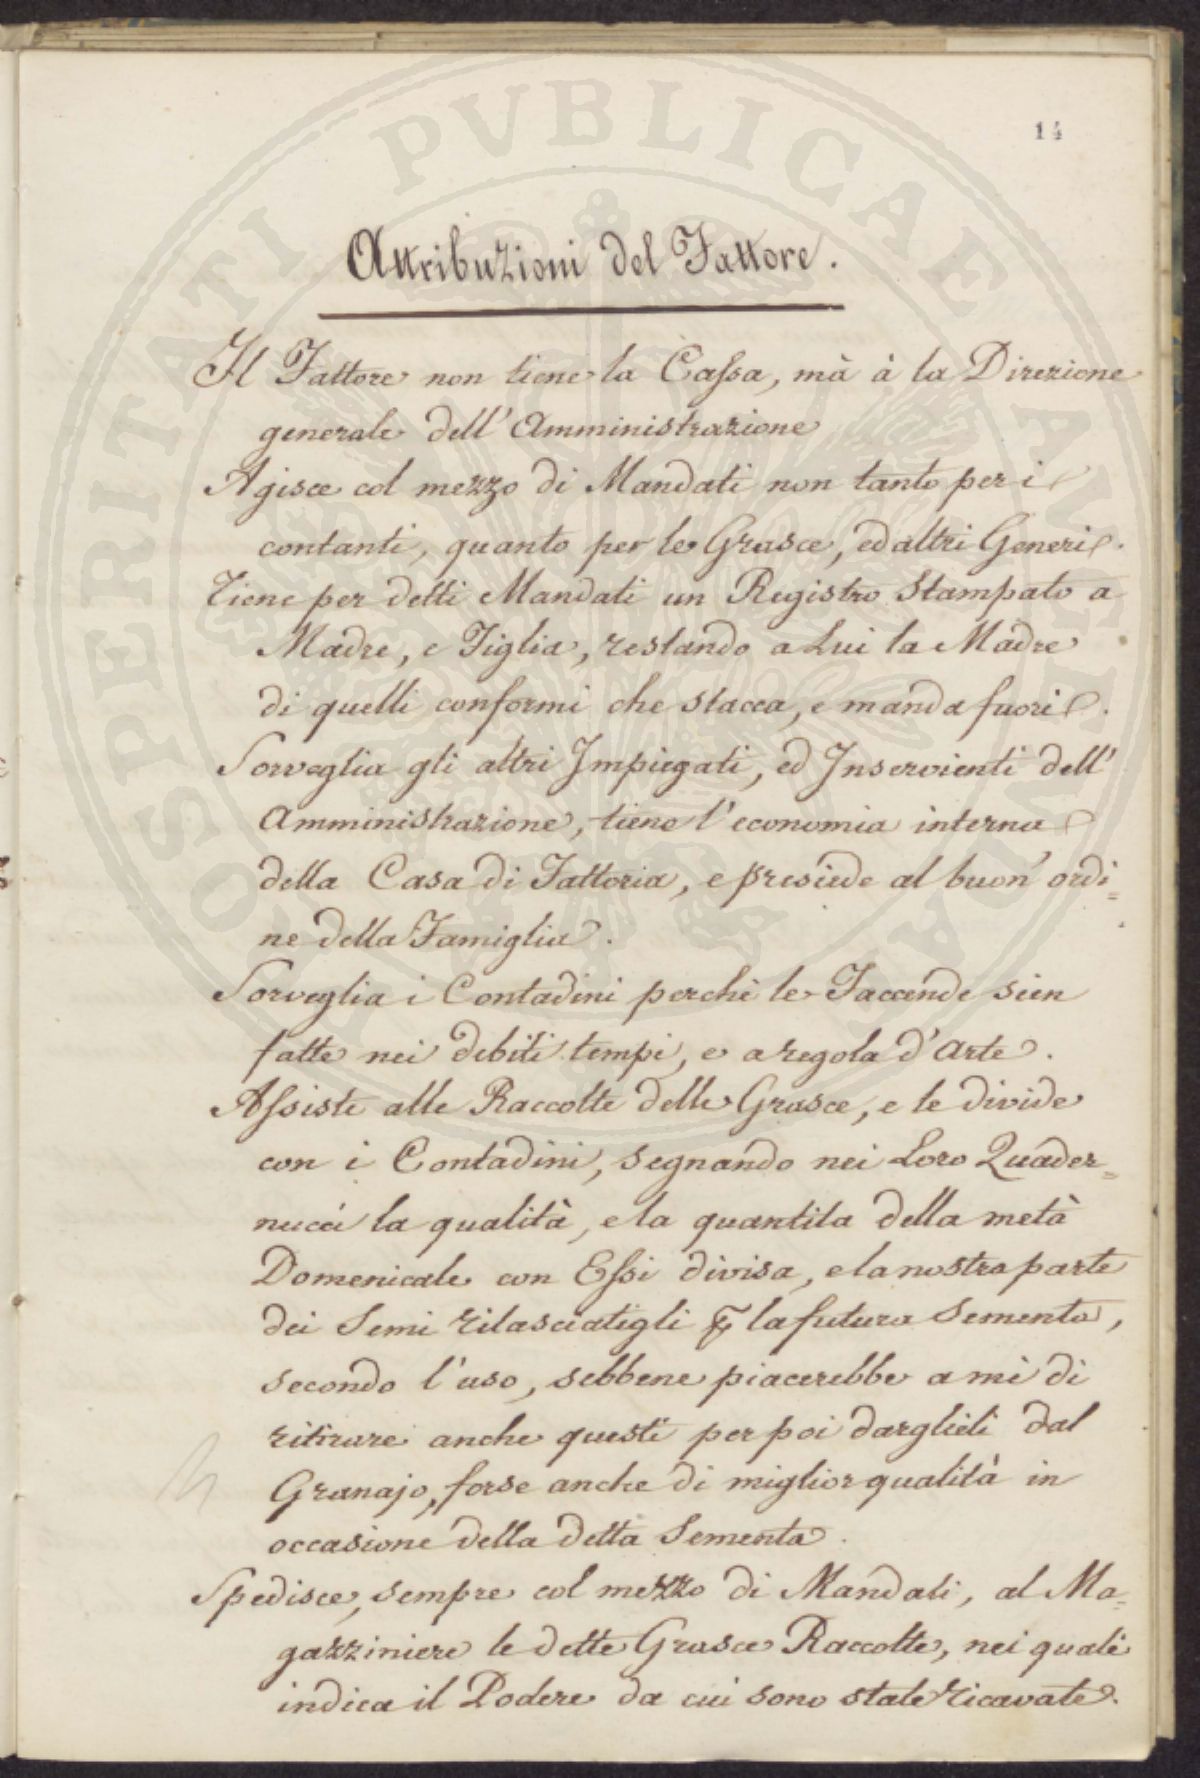 PROSPERITATI PVBLICAE AVGENDAE
14
Attribuzioni del Fattore.
Il Fattore non tiene la Cassa, mà à la Direzione
generale dell' Amministrazione
Agisce col mezzo di Mandati non tanto per i
contanti, quanto per le Grasce, ed altri Generi.
Tiene per detti Mandati un Registro Stampato a
Madre, e Figlia, restando a Lui la Madre
di quelli conformi che stacca, e manda fuori.
Sorveglia gli altri Impiegati, ed Inservienti dell'
Amministrazione, tiene l'economia interna
della Casa di Fattoria, e presiede al buon' ordi=
ne della Famiglia.
Sorveglia i Contadini perchè le Faccende sien
fatte nei debiti tempi, e a regola d'Arte.
Assiste alle Raccolte delle Grasce, e le divide
con i Contadini, segnando nei Loro Quader=
nucci la qualità, e la quantita della metà
Domenicale con Essi divisa, e la nostra parte
dei Semi rilasciatigli p la futura Sementa,
secondo l'uso, sebbene piacerebbe a mè di
ritirare anche questi per poi darglieli dal
Granajo, forse anche di miglior qualità in
occasione della detta Sementa.
Spedisce, sempre col mezzo di Mandati, al Ma=
gazziniere le dette Grasce Raccolte, nei quali
indica il Podere da cui sono state ricavate.